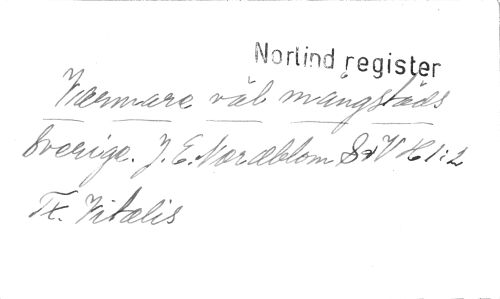 Norlind register
Varmare väl mångstäds
Sverige. J. E. Nordblom S&V H1:2
Tx. Vitalis